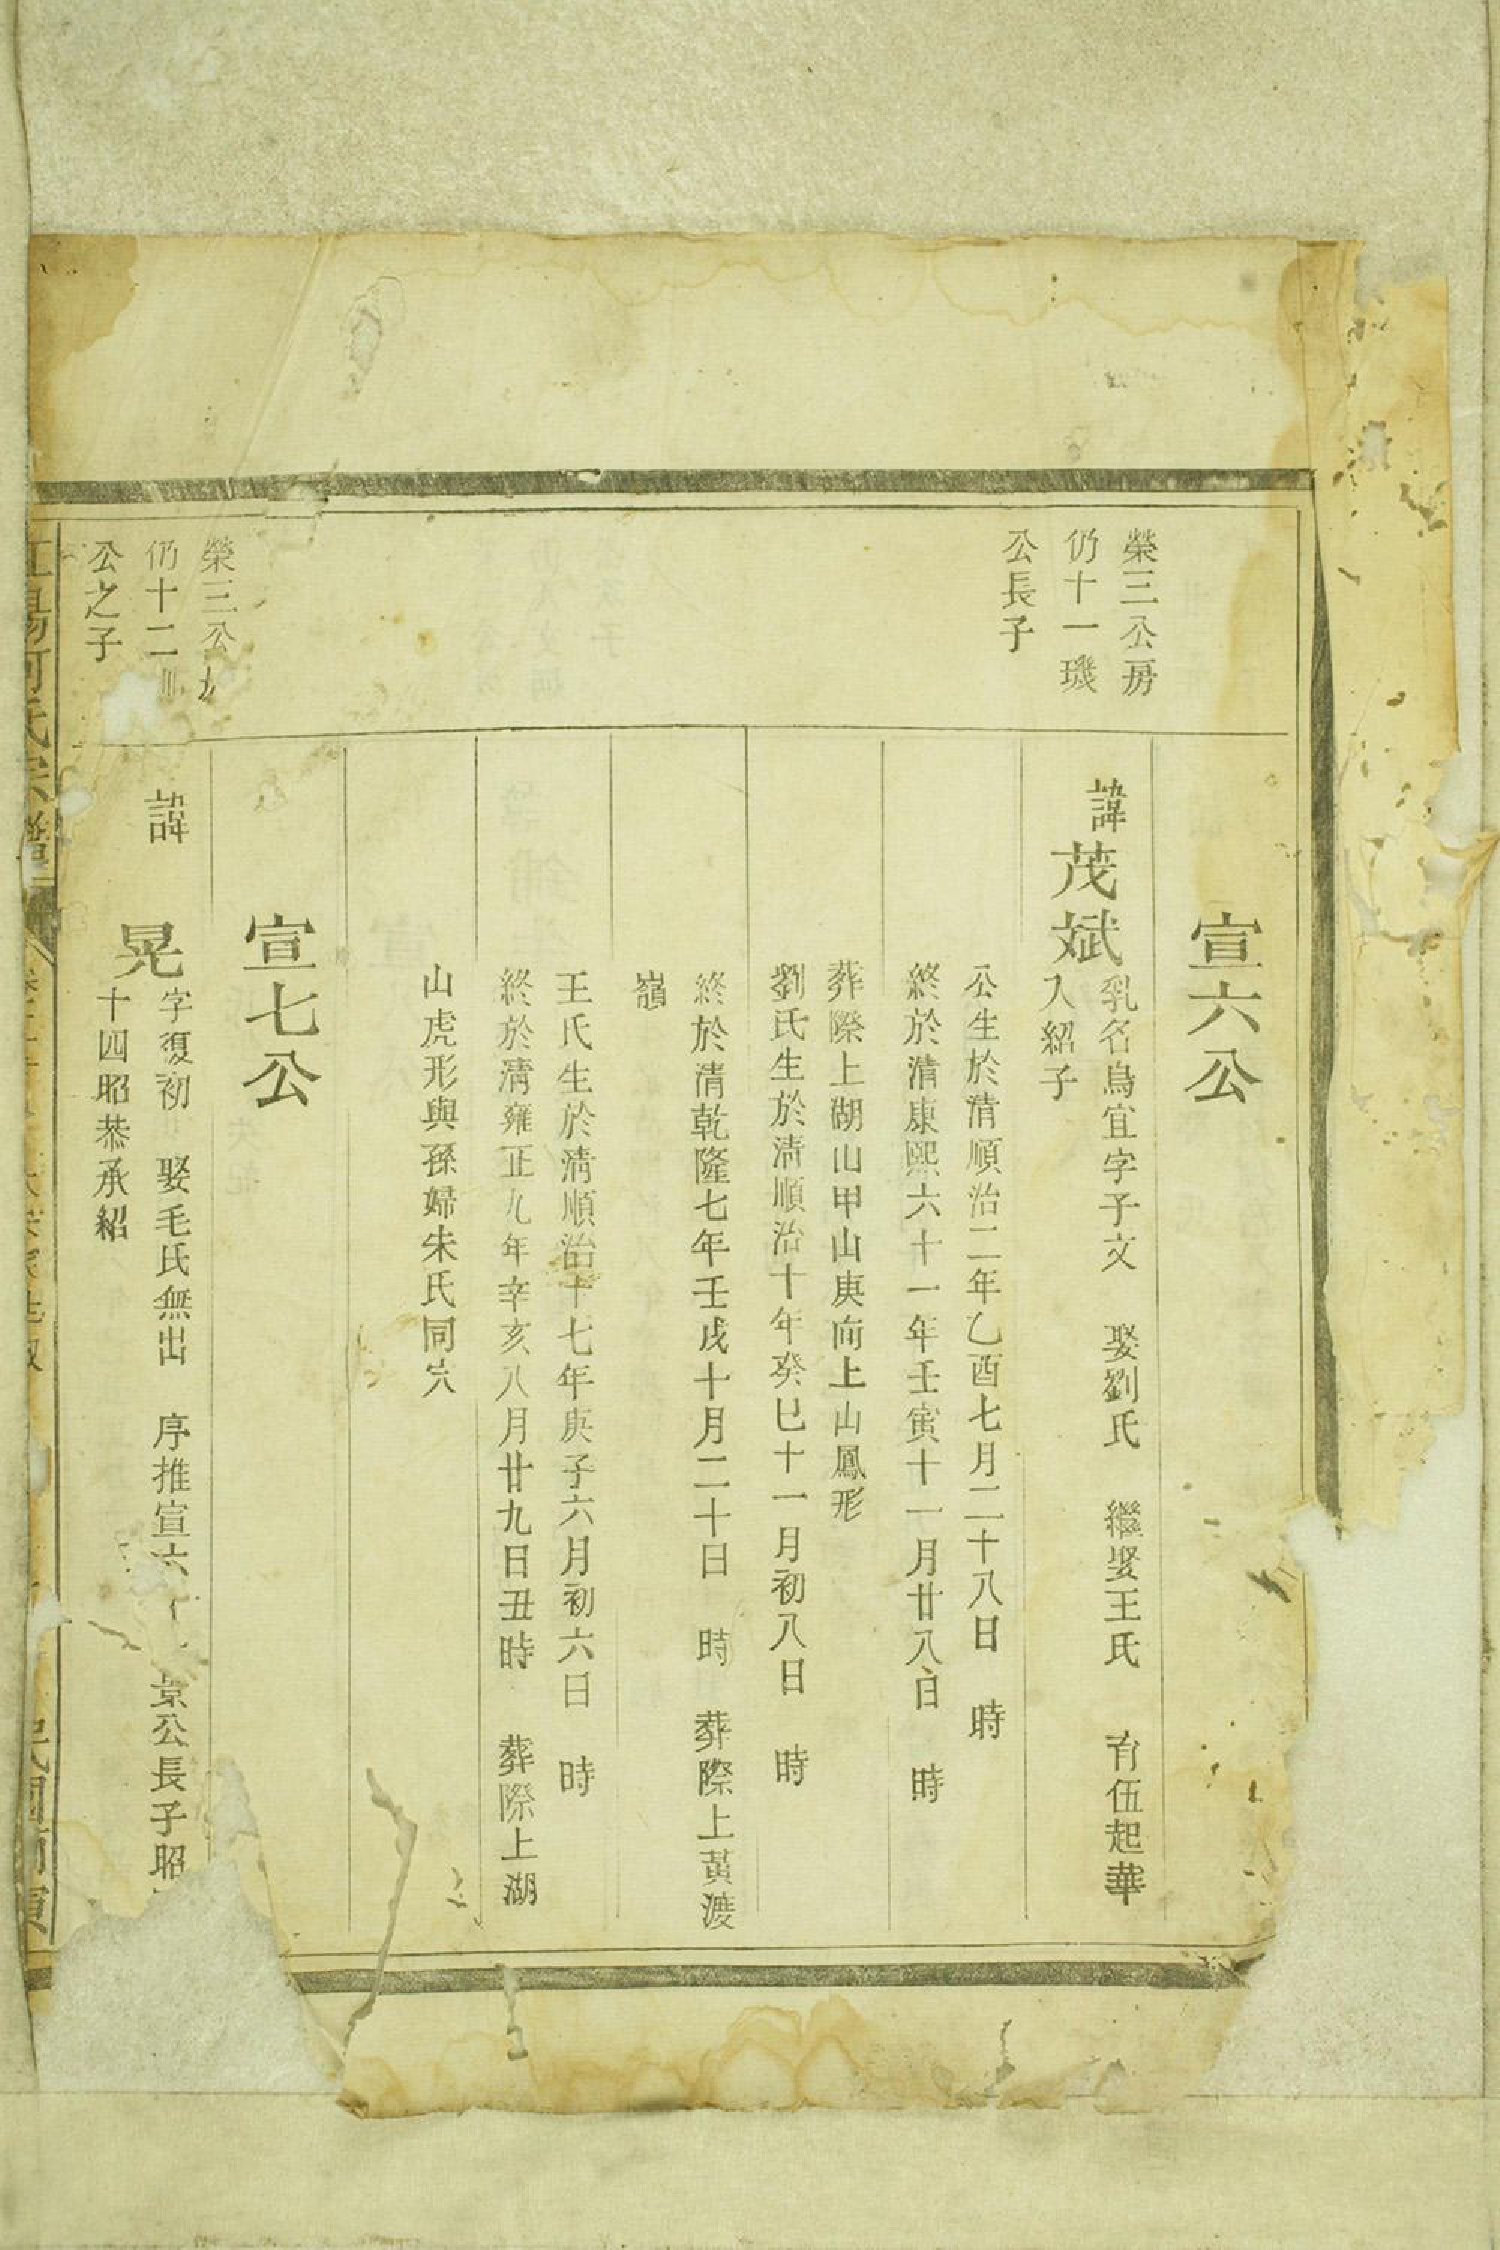 宣六公
榮三公房
仍十一璣
公長子
諱茂斌
乳名鳥宜字子文　娶劉氏　繼娶王氏　育伍起華
入紹子
公生於清順治二年乙酉七月二十八日　時
終於清康熙六十一年壬寅十一月廿八日　時
葬際上湖山甲山庚向上山鳳形
劉氏生於清順治十年癸巳十一月初八日　時
終於清乾隆七年壬戌十月二十日　時　葬際上黃渡
嶺
王氏生於清順治十七年庚子六月初六日　時
終於清雍正九年辛亥八月廿九日丑時　葬際上湖
山虎形與孫婦朱氏同穴
宣七公
榮三公
仍十二
公之子
諱　晃
字復初　娶毛氏無出　序推宣六　景公長子昭
十四昭恭承紹
氏宗譜
民國